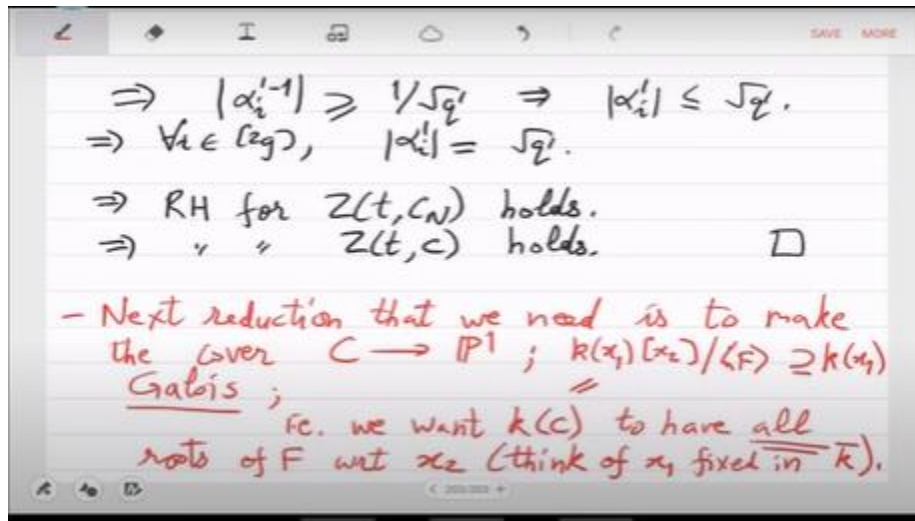 SAVE MORE
⇒ |αᵢ'⁻¹| ⩾ 1/√q' ⇒ |αᵢ'| ≤ √q'.
⇒ ∀i ∈ [2g], |αᵢ'| = √q'.
⇒ RH for Z(t,C_N) holds.
⇒ " " Z(t,C) holds. □
- Next reduction that we need is to make
the cover C → ℙ¹ ; k(x₁)[x₂]/⟨F⟩ ⊇ k(x₁)
Galois ;
i.e. we want k(C) to have all
roots of F wrt x₂ (think of x₁ fixed in k̄).